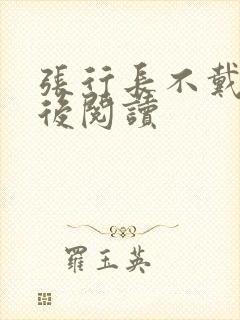 張行長不戴
後閱讀
羅玉英